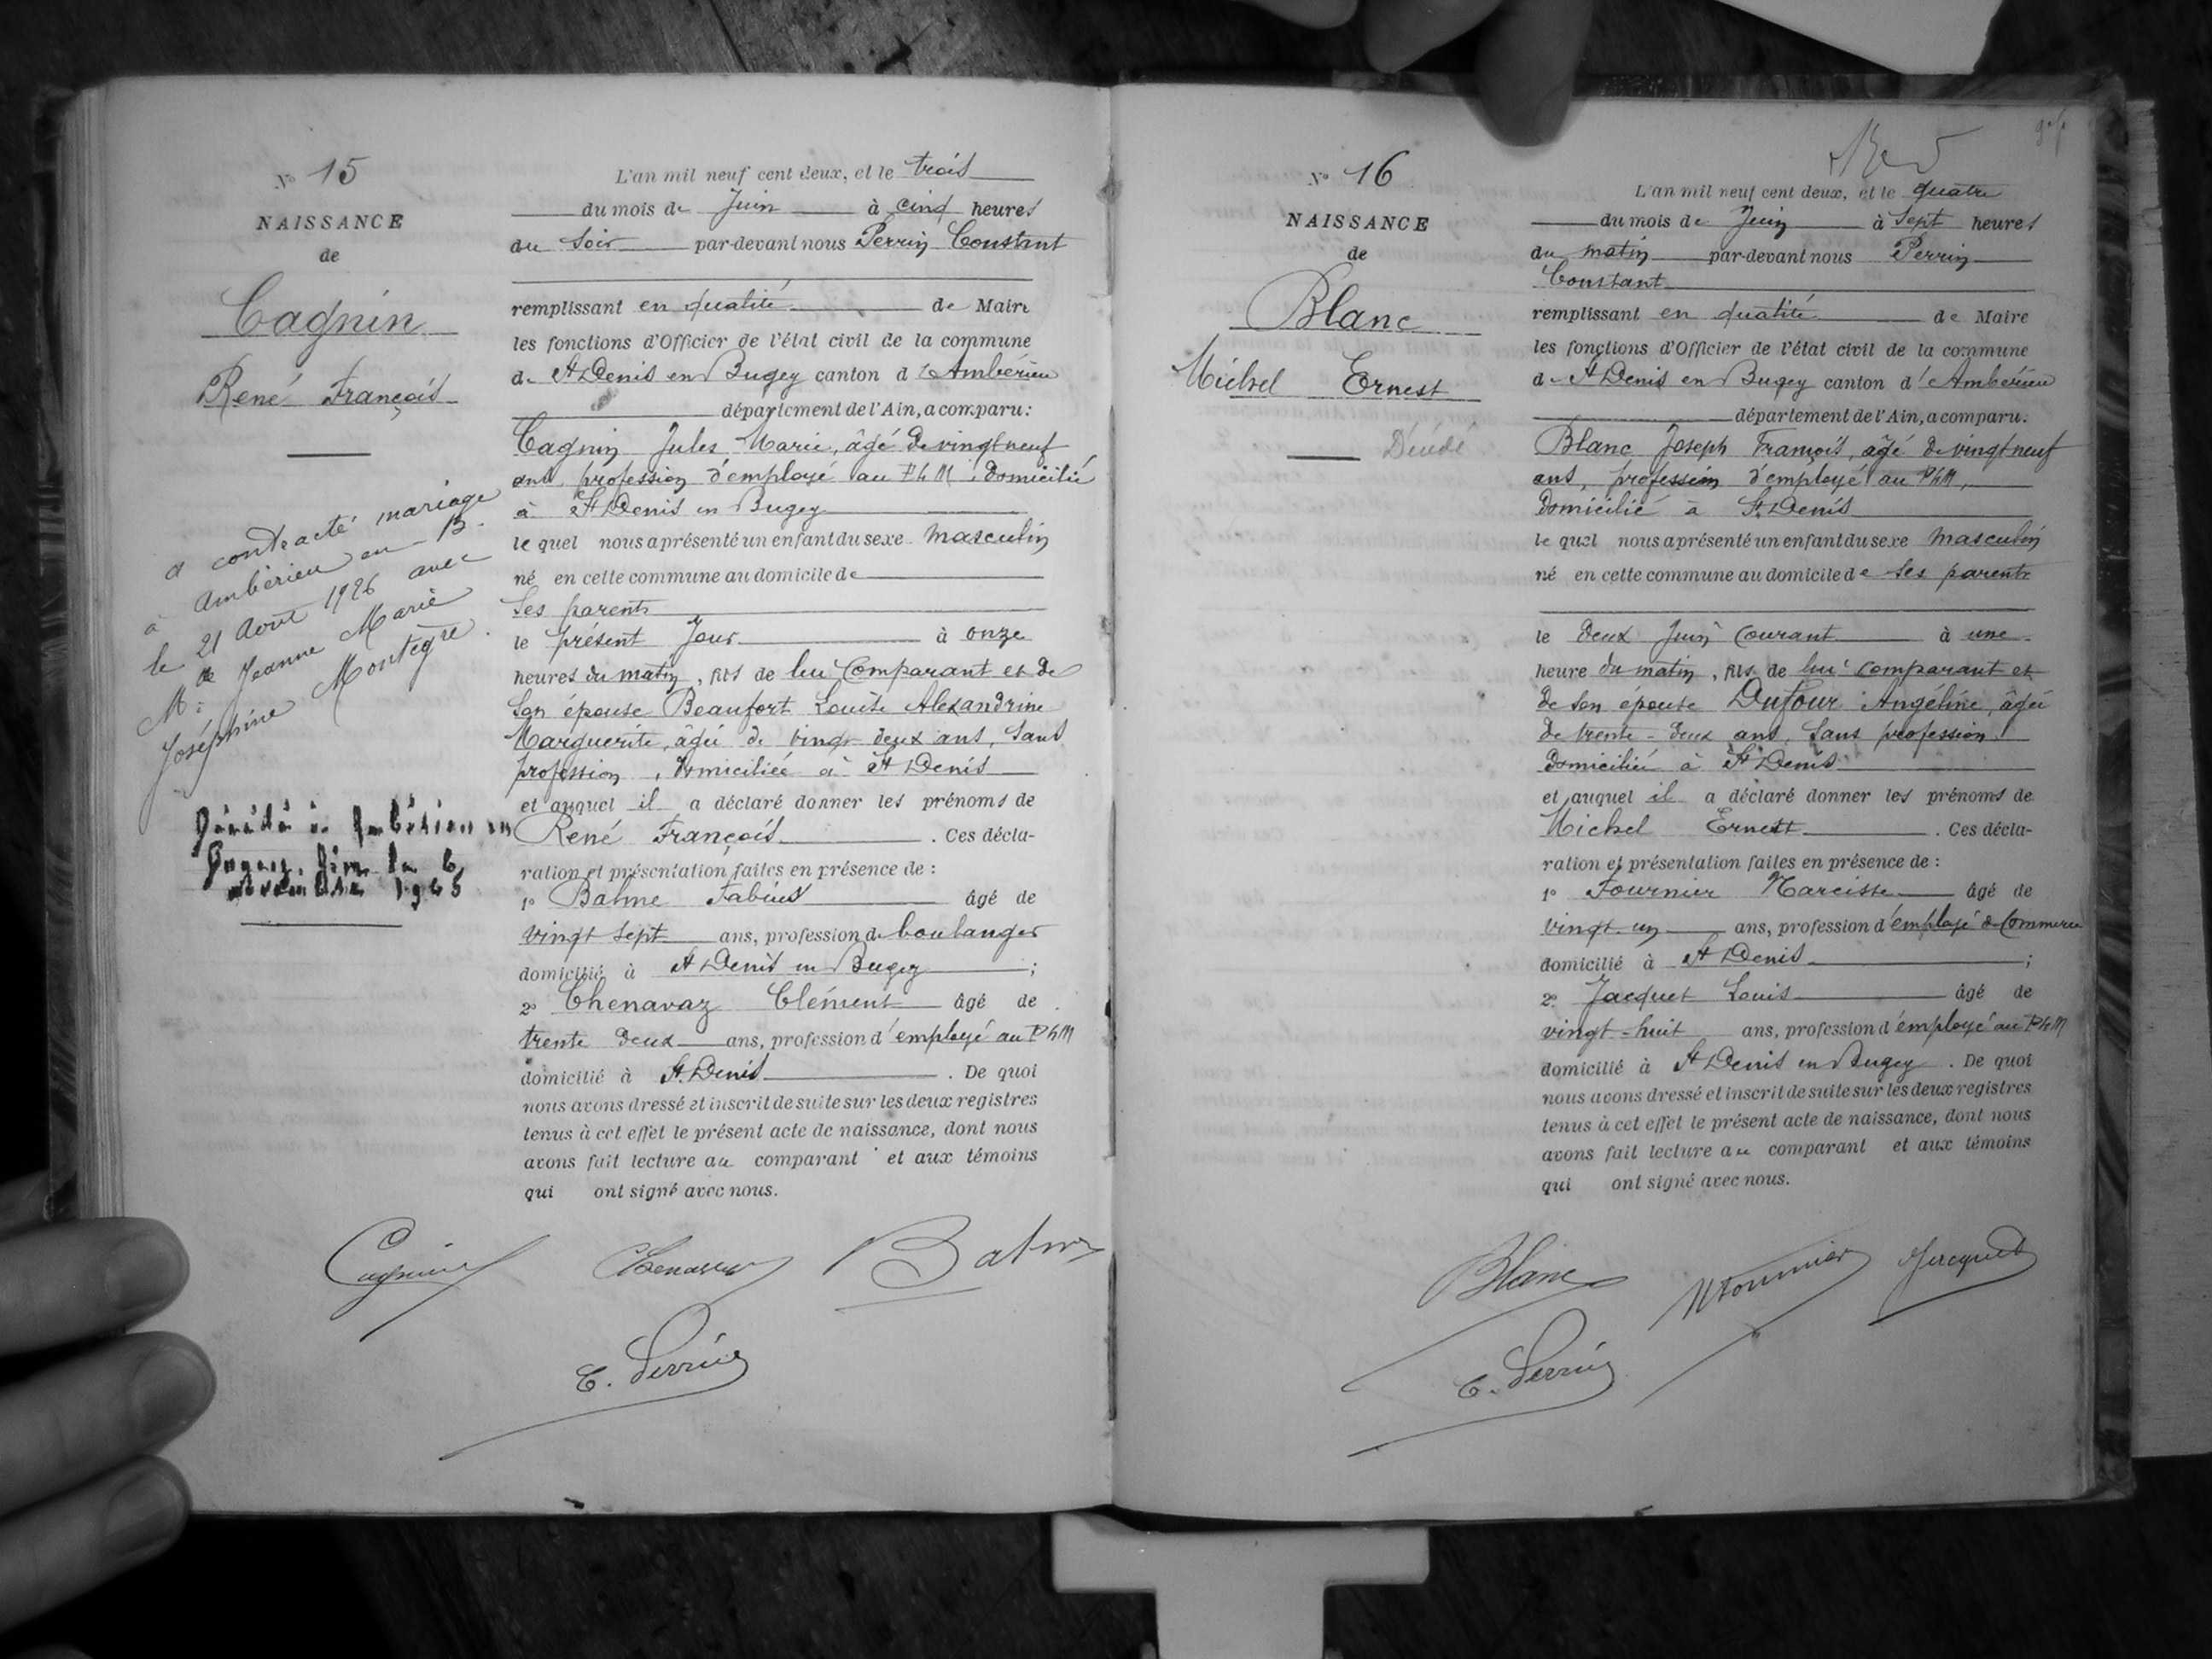 N° 15
NAISSANCE
de
Cagnin
René François
a contracté mariage
à Ambérieu en B.
le 21 Août 1926 avec
Jeanne Marie
Joséphine Montègre.
Décédé à Ambérieu en
Bugey, Ain le 6
novembre 1965
L'an mil neuf cent deux, et le trois
du mois de Juin à cinq heures
du soir par-devant nous Perrin Constant
remplissant en qualité de Maire
les fonctions d'Officier de l'état civil de la commune
de St Denis en Bugey canton d'Ambérieu
département de l'Ain, a comparu:
Cagnin Jules Marie, âgé de vingt neuf
ans, profession d'employé au PLM, domicilié
à St Denis en Bugey
le quel nous a présenté un enfant du sexe masculin
né en cette commune au domicile de
ses parents
le présent jour à onze
heures du matin, fils de lui comparant et de
son épouse Beaufort Louise Alexandrine
Marguerite, âgée de vingt deux ans, sans
profession, domiciliée à St Denis
et auquel il a déclaré donner les prénoms de
René François. Ces décla-
ration et présentation faites en présence de :
1° Balme Fabius âgé de
vingt sept ans, profession de boulanger
domicilié à St Denis en Bugey ;
2° Chenavaz Clément âgé de
trente deux ans, profession d'employé au PLM
domicilié à St. Denis. De quoi
nous avons dressé et inscrit de suite sur les deux registres
tenus à cet effet le présent acte de naissance, dont nous
avons fait lecture au comparant et aux témoins
qui ont signé avec nous.
Cagnin Chenavaz Balme
C. Perrin
N° 16
NAISSANCE
de
Blanc
Michel Ernest
Décédé
L'an mil neuf cent deux, et le quatre
du mois de Juin à sept heures
du matin par-devant nous Perrin
Constant
remplissant en qualité de Maire
les fonctions d'Officier de l'état civil de la commune
de St Denis en Bugey canton d'Ambérieu
département de l'Ain, a comparu.
Blanc Joseph François, âgé de vingt neuf
ans, profession d'employé au PLM,
domicilié à St. Denis
le quel nous a présenté un enfant du sexe masculin
né en cette commune au domicile de ses parents
le deux Juin courant à une
heure du matin, fils de lui comparant et
de son épouse Dufour Angéline, âgée
de trente-deux ans, sans profession
domiciliée à St Denis
et auquel il a déclaré donner les prénoms de
Michel Ernest. Ces décla-
ration et présentation faites en présence de :
1° Fournier Narcisse âgé de
vingt-un ans, profession d'employé de Commerce
domicilié à St Denis ;
2° Jacquet Louis âgé de
vingt-huit ans, profession d'employé au PLM
domicilié à St Denis en Bugey. De quoi
nous avons dressé et inscrit de suite sur les deux registres
tenus à cet effet le présent acte de naissance, dont nous
avons fait lecture au comparant et aux témoins
qui ont signé avec nous.
Blanc NFournier Jacquet
C. Perrin